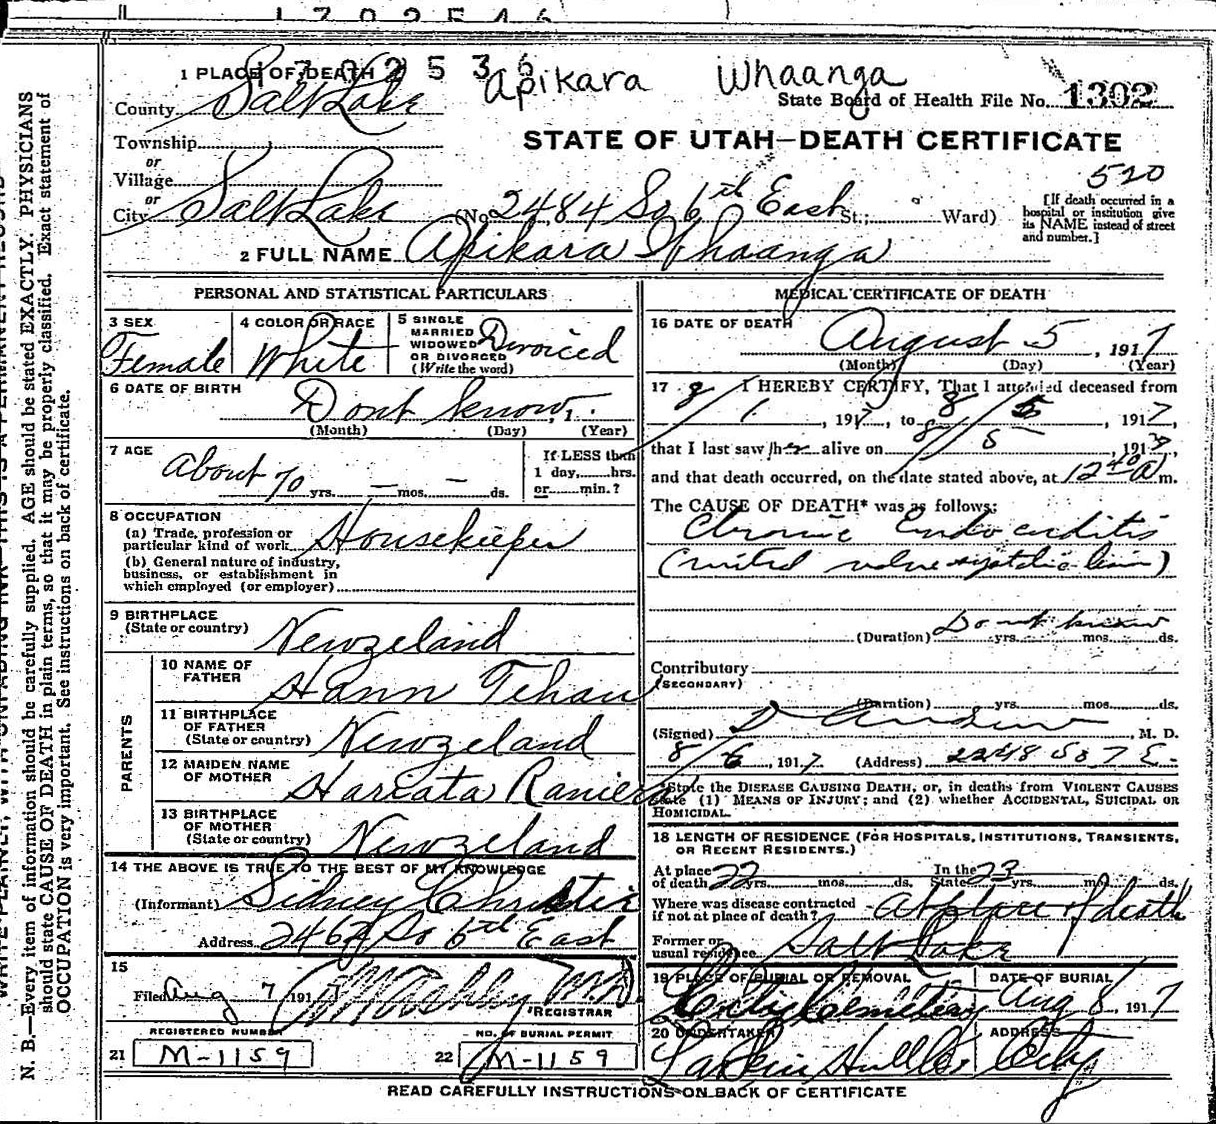 1792546
1792536
Apikara Whaanga
1 PLACE OF DEATH
County Salt Lake
State Board of Health File No. 1302
Township
or
Village
or
City Salt Lake (No. 2484 So 6th East St.; Ward)
STATE OF UTAH—DEATH CERTIFICATE
520
[If death occurred in a
hospital or institution give
its NAME instead of street
and number.]
2 FULL NAME Apikara Whaanga
PERSONAL AND STATISTICAL PARTICULARS
3 SEX
Female
4 COLOR OR RACE
White
5 SINGLE
MARRIED
WIDOWED
OR DIVORCED
(Write the word)
Divoiced
6 DATE OF BIRTH
Dont know,
(Month) (Day) (Year)
7 AGE
About 70 yrs. – mos. – ds.
If LESS than
1 day, hrs.
or min.?
8 OCCUPATION
(a) Trade, profession or
particular kind of work Housekeeper
(b) General nature of industry,
business, or establishment in
which employed (or employer)
9 BIRTHPLACE
(State or country) Newzeland
PARENTS
10 NAME OF
FATHER Hann Tehau
11 BIRTHPLACE
OF FATHER
(State or country) Newzeland
12 MAIDEN NAME
OF MOTHER Hariata Raniera
13 BIRTHPLACE
OF MOTHER
(State or country) Newzeland
14 THE ABOVE IS TRUE TO THE BEST OF MY KNOWLEDGE
(Informant) Sidney Christie
Address 2462 So 6th East
15
Filed Aug 7 1917
REGISTRAR
REGISTERED NUMBER
21 M-1159
NO. OF BURIAL PERMIT
22 M-1159
MEDICAL CERTIFICATE OF DEATH
16 DATE OF DEATH
August 5, 1917
(Month) (Day) (Year)
17 I HEREBY CERTIFY, That I attended deceased from
8/1, 1917, to 8/5, 1917,
that I last saw her alive on 8/5 1917,
and that death occurred, on the date stated above, at 12 40 A m.
The CAUSE OF DEATH* was as follows:
Chronic Endocarditis
(mitral valve systolic
(Duration) Do not know yrs. mos. ds.
Contributory
(SECONDARY)
(Duration) yrs. mos. ds.
(Signed) M. D.
8/6, 1917 (Address) 2248 So 7 E.
*State the DISEASE CAUSING DEATH, or, in deaths from VIOLENT CAUSES
state (1) MEANS OF INJURY; and (2) whether ACCIDENTAL, SUICIDAL OR
HOMICIDAL.
18 LENGTH OF RESIDENCE (FOR HOSPITALS, INSTITUTIONS, TRANSIENTS,
OR RECENT RESIDENTS.)
At place
of death 22 yrs. mos. ds. In the
State 23 yrs. mos. ds.
Where was disease contracted
if not at place of death? At place of death
Former or
usual residence Salt Lake
19 PLACE OF BURIAL OR REMOVAL
City Cemetery
DATE OF BURIAL
Aug 8 1917
20 UNDERTAKER
Larkin Hull Co
ADDRESS
City
READ CAREFULLY INSTRUCTIONS ON BACK OF CERTIFICATE
N. B.—Every item of information should be carefully supplied. AGE should be stated EXACTLY. PHYSICIANS
should state CAUSE OF DEATH in plain terms, so that it may be properly classified. Exact statement of
OCCUPATION is very important. See instructions on back of certificate.